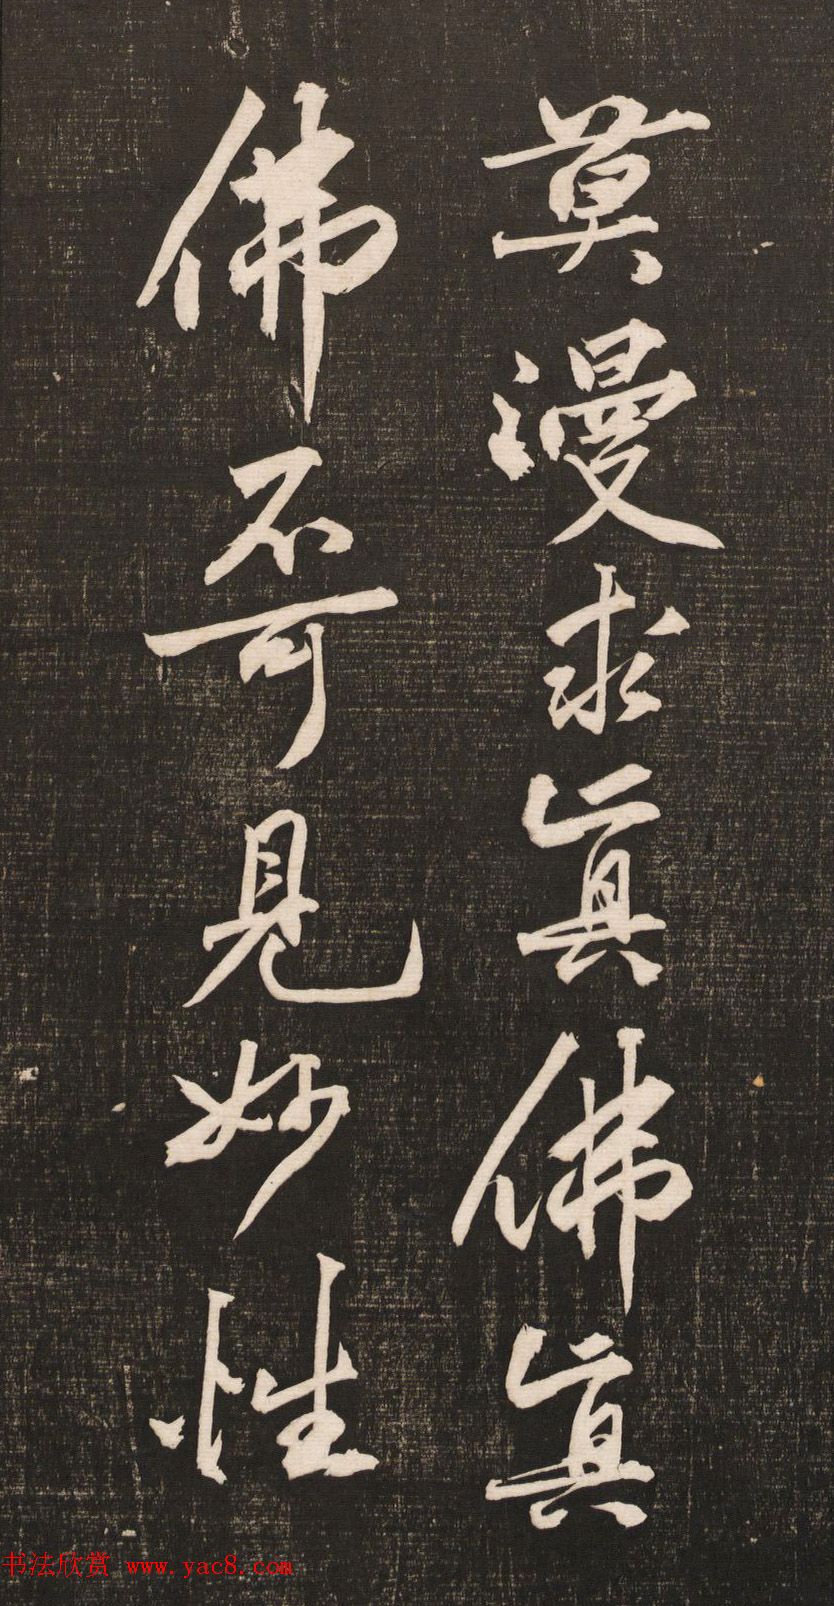 莫漫求真佛真
佛不可見妙性
书法欣赏 www.yac8.com